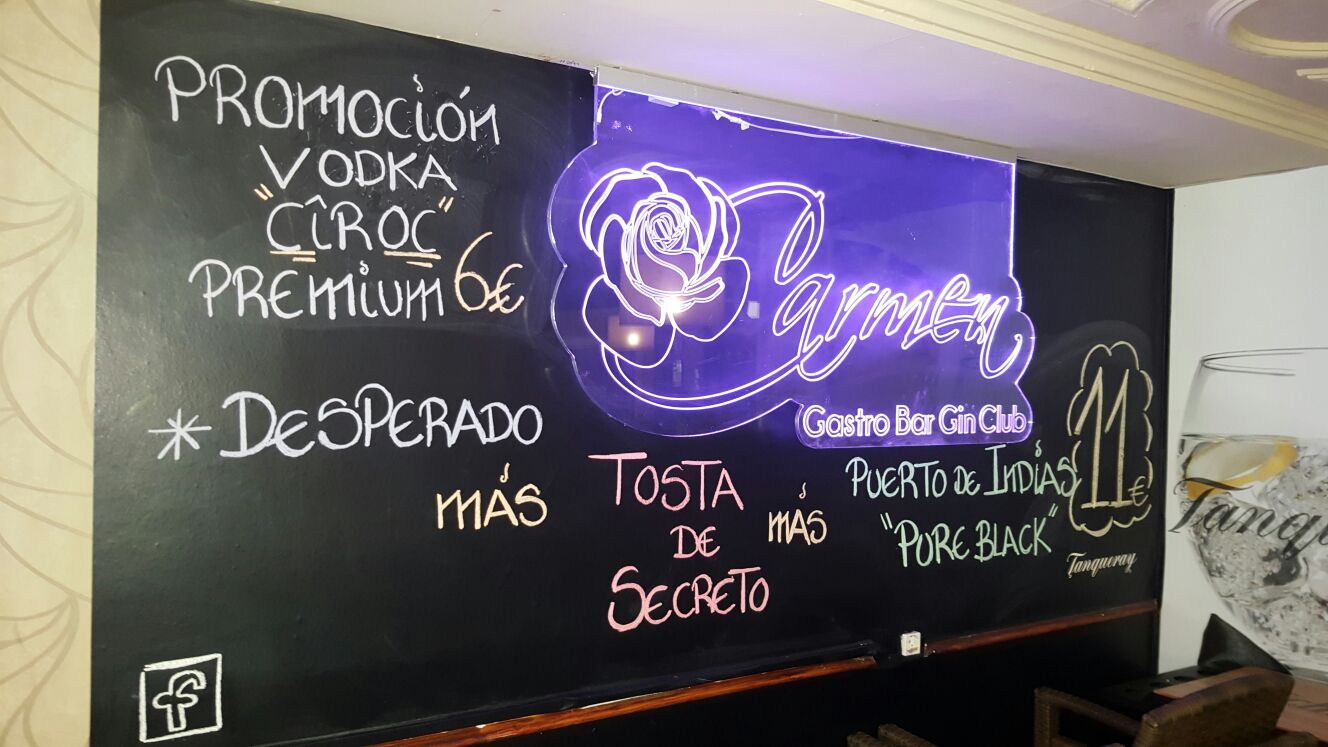 PROMOCIÓN
VODKA
"CÎROC"
PREMIUM 6€
Carmen
Gastro Bar Gin Club
* DESPERADO
MÁS
TOSTA
DE
SECRETO
MÁS
PUERTO DE INDIAS
"PURE BLACK"
11€
Tanqueray
f
Tanqu